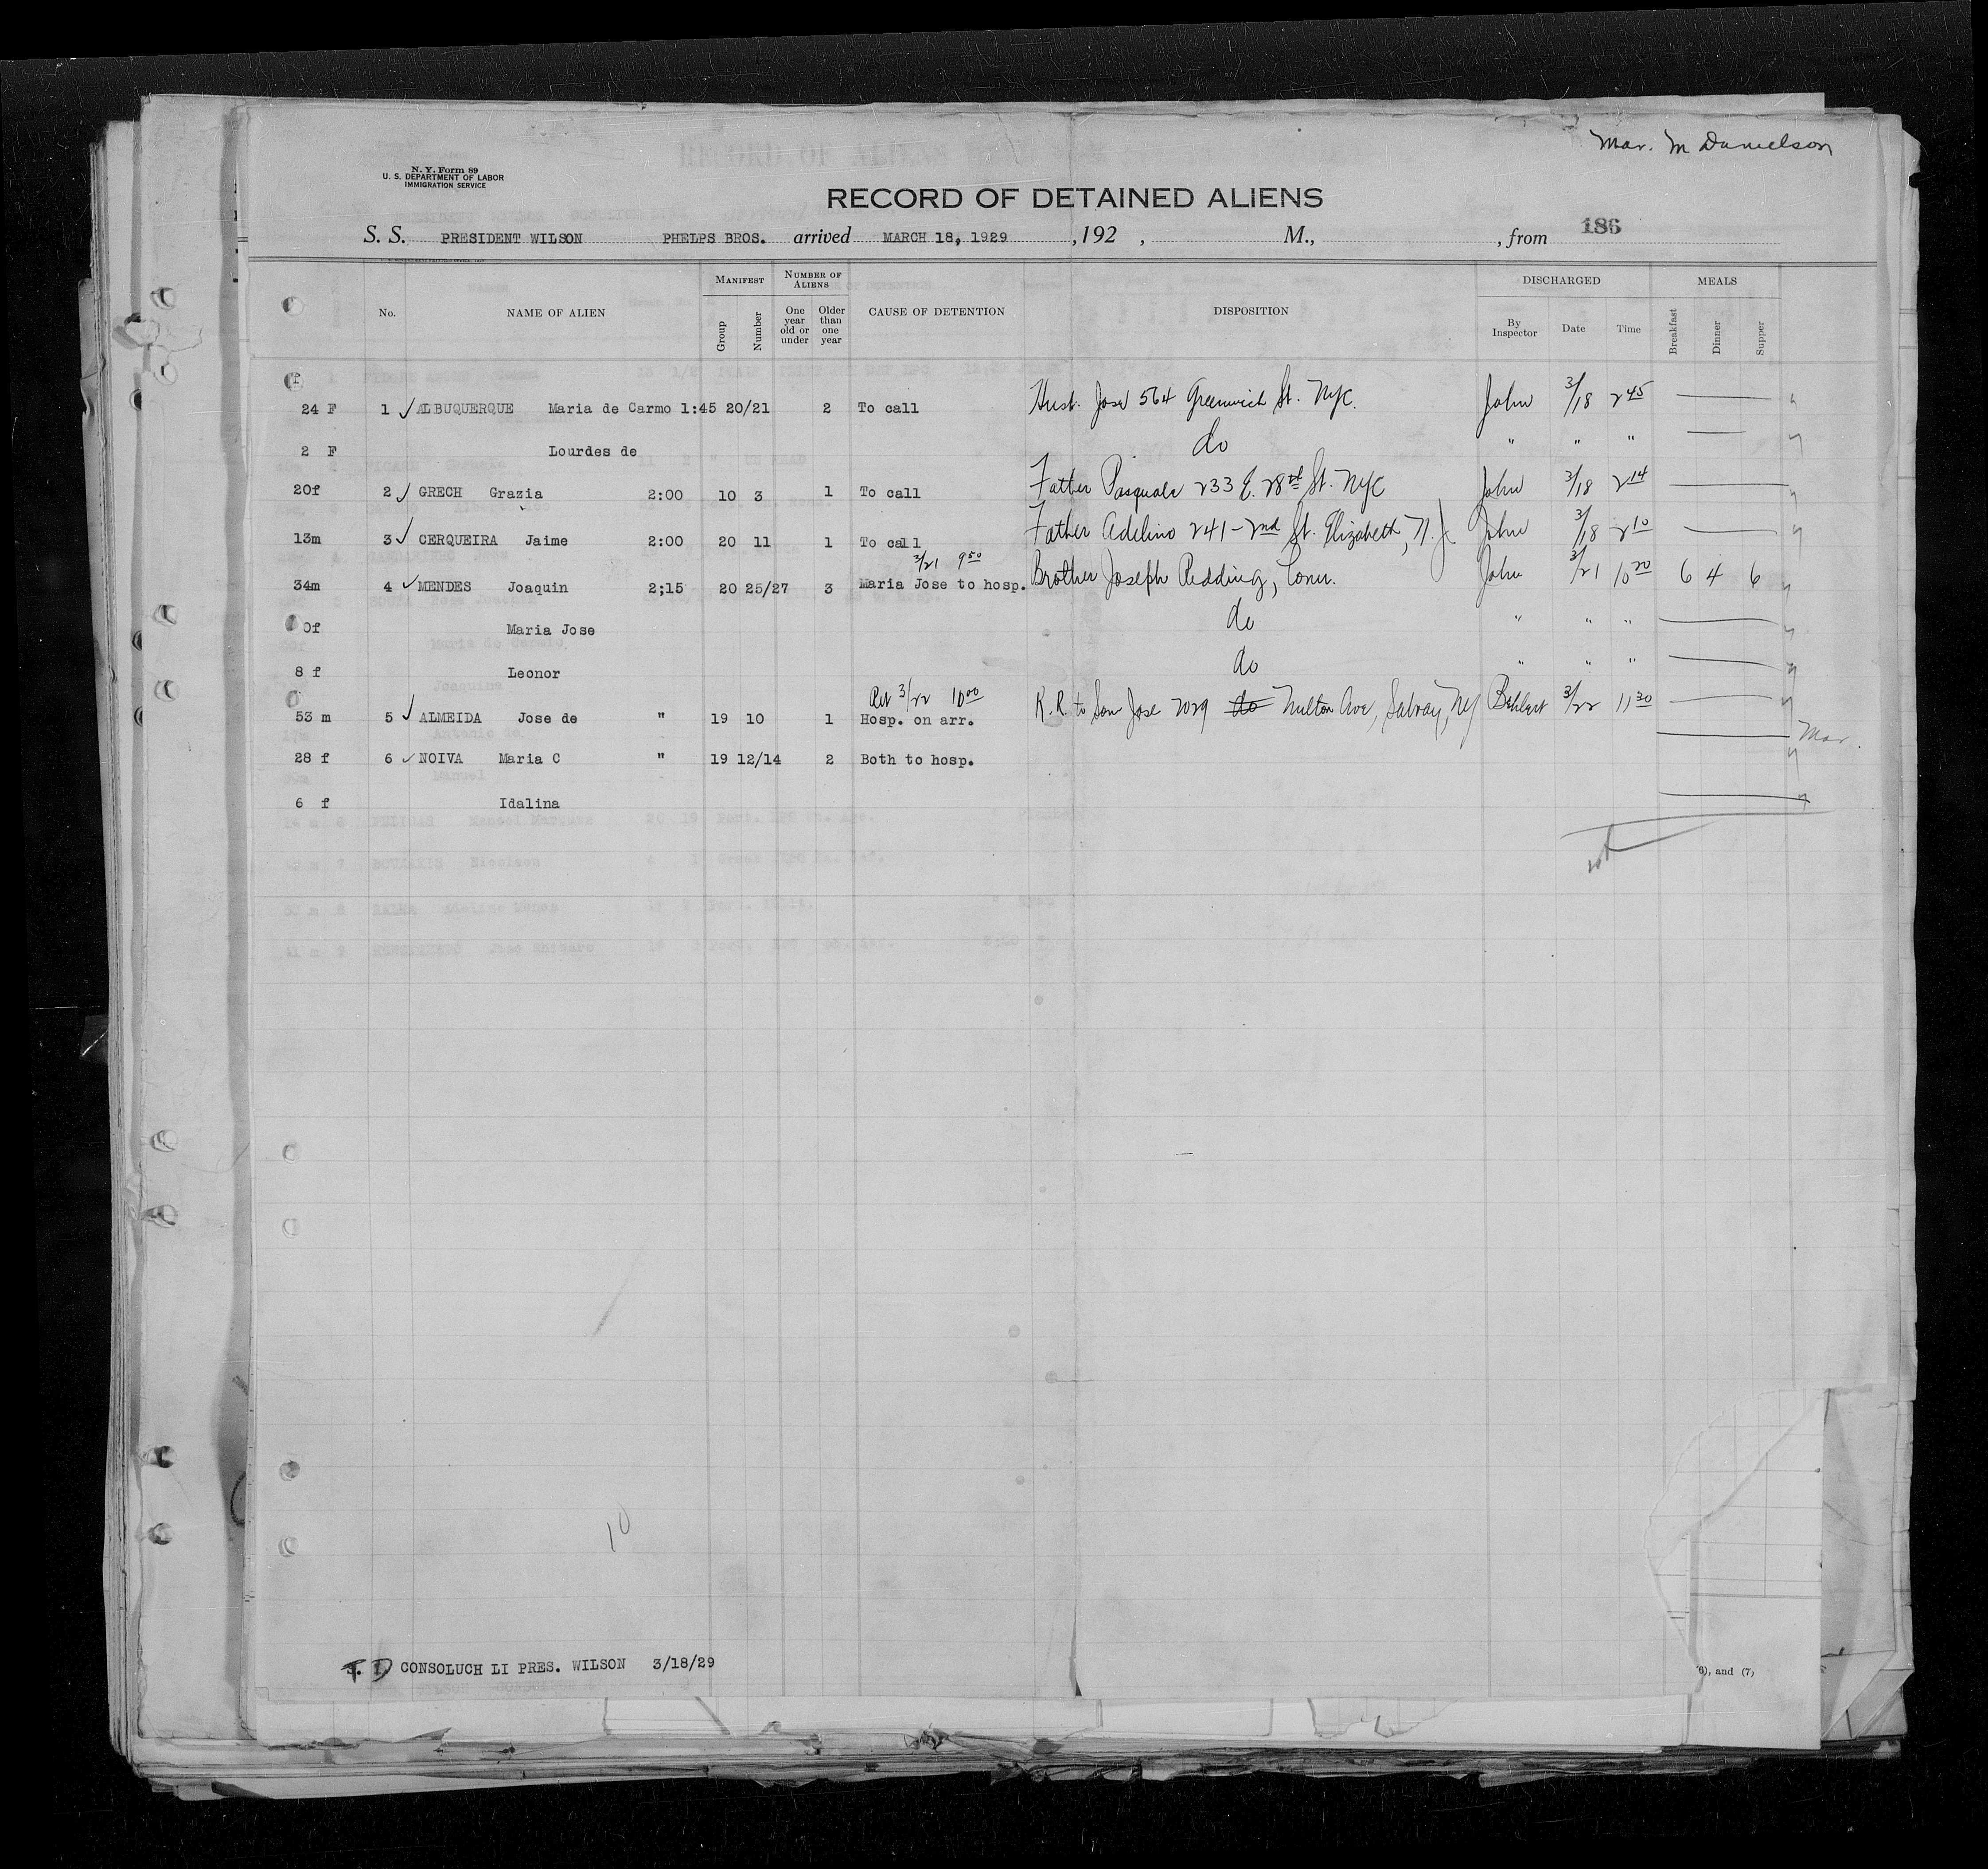 Mar. M Danielson
N. Y. Form 89
U. S. DEPARTMENT OF LABOR
IMMIGRATION SERVICE
RECORD OF DETAINED ALIENS
S. S. PRESIDENT WILSON PHELPS BROS. arrived MARCH 18, 1929 , 192 , M., , from 186
No. NAME OF ALIEN MANIFEST Group Number NUMBER OF ALIENS One year old or under Older than one year CAUSE OF DETENTION DISPOSITION DISCHARGED By Inspector Date Time MEALS Breakfast Dinner Supper
24 F 1 ✓ ALBUQUERQUE Maria de Carmo 1:45 20/21 2 To call Hust. Jose 564 Greenwich St. NYC. John 3/18 2 45
2 F Lourdes de do " " "
20f 2 ✓ GRECH Grazia 2:00 10 3 1 To call Father Pasquale 233 E. 28 St. NYC John 3/18 2 14
13m 3 ✓ CERQUEIRA Jaime 2:00 20 11 1 To call Father Adelino 241-2nd St. Elizabeth, N. J. John 3/18 2 10
3/21 9 50
34m 4 ✓ MENDES Joaquin 2;15 20 25/27 3 Maria Jose to hosp. Brother Joseph Redding, Conn. John 3/21 10 20 6 4 6
0f Maria Jose do " " "
8 f Leonor do " " "
3/22 10 00
53 m 5 ✓ ALMEIDA Jose de " 19 10 1 Hosp. on arr. R.R. to Son Jose do Ave, NY 3/22 11 30
Mar.
28 f 6 ✓ NOIVA Maria C " 19 12/14 2 Both to hosp.
6 f Idalina
10
CONSOLUCH LI PRES. WILSON 3/18/29
6), and (7)